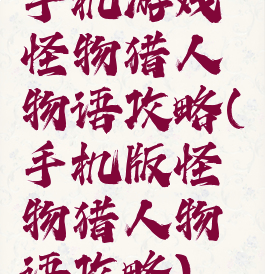 手机游戏
怪物猎人
物语攻略(
手机版怪
物猎人物
语攻略)